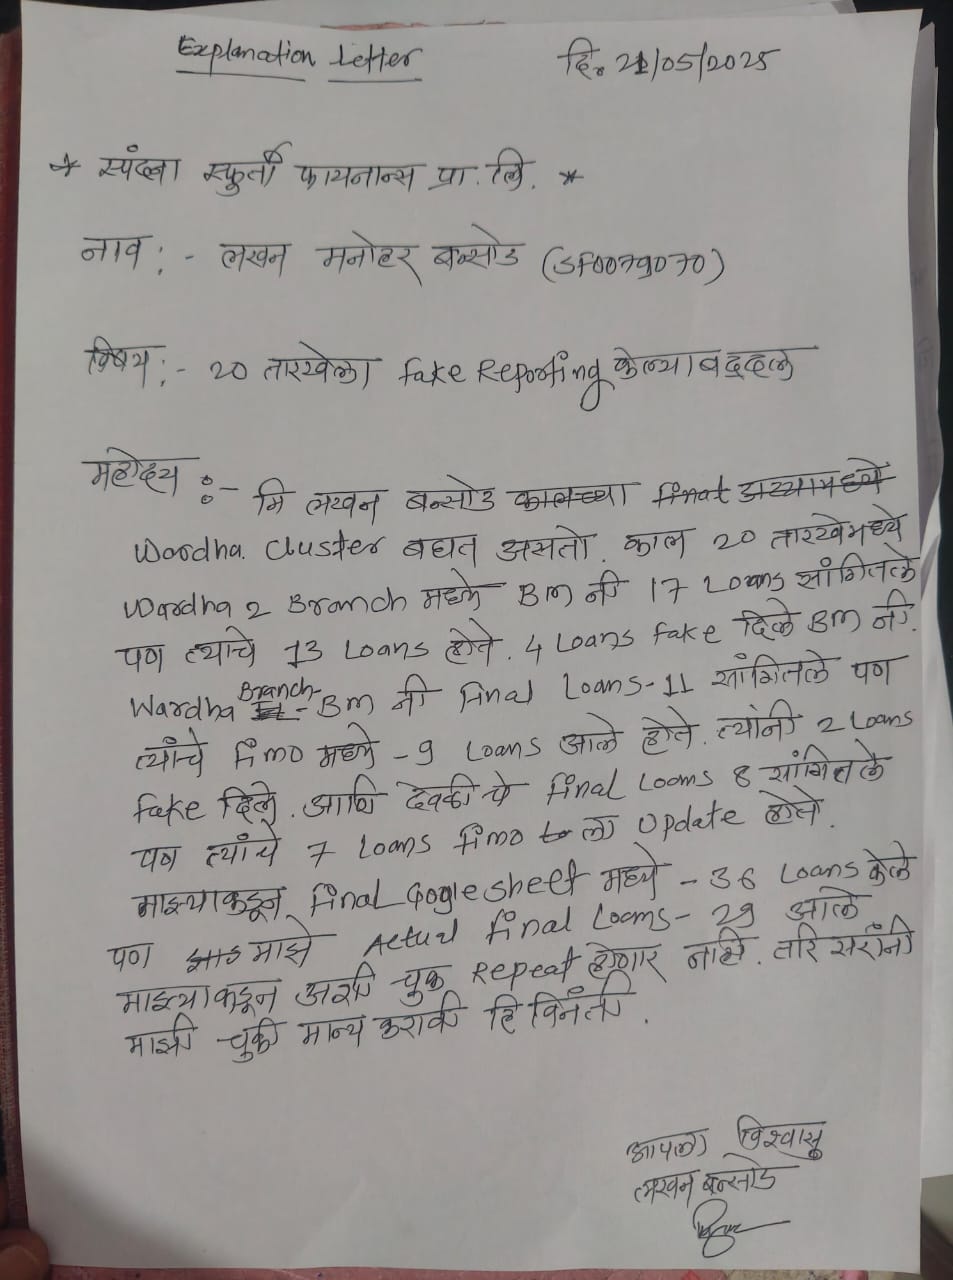 Explanation Letter दि. 21/05/2025
* स्पंदना स्फुर्ती फायनान्स प्रा. लि. *
नाव :- लखन मनोहर बन्सोड (SF0079070)
विषय :- 20 तारखेला fake Reporting केल्याबद्दल
महोदय :- मि लखन बन्सोड कालच्या final
Wardha Cluster बघत असतो. काल 20 तारखेमध्ये
Wardha 2 Branch मध्ये BM नी 17 Loans सांगितले
पण त्याचे 13 Loans होते. 4 Loans fake दिले BM नी.
Wardha Branch - BM नी final Loans - 11 सांगितले पण
त्यांचे fimo मध्ये - 9 Loans आले होते. त्यांनी 2 Loans
fake दिले. आणि देवळी चे final Loans 8 सांगितले
पण त्यांचे 7 Loans fimo ला Update होते.
माझ्याकडून final Gogle sheet मध्ये - 36 Loans केले
पण माझे Actual final Loams - 29 आले
माझ्याकडून अशी चुक Repeat होणार नाही. तरि सरांनी
माझी चुकी मान्य करावी हि विनंती.
आपला विश्वासू
लखन बन्सोड